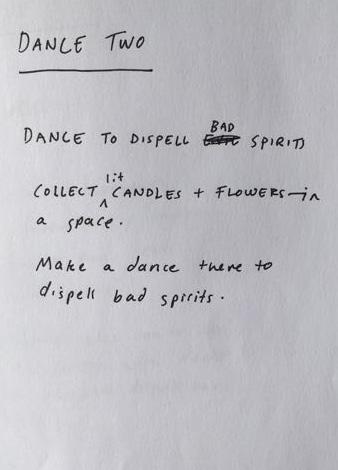 DANCE TWO
DANCE TO DISPELL BAD SPIRITS
COLLECT lit CANDLES + FLOWERS in
a space.
Make a dance there to
dispell bad spirits.